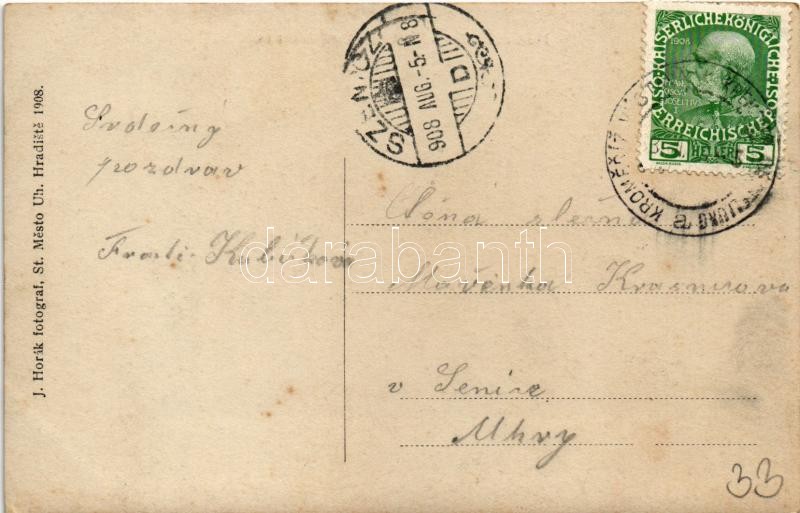 J. Horák fotograf, St. Město Uh. Hradiště 1908.
Srdečný
pozdrav
Frant. Kubíčková
908 AUG. -5.
D
KAISERLICHE KÖNIGLICHE
1908
ÖSTERREICHISCHE POST
5 HELLER 5
KROMĚŘÍŽ
Ctěná slečna
Mařenka Krasnicova
v Senici
Uhry
darabanth
33